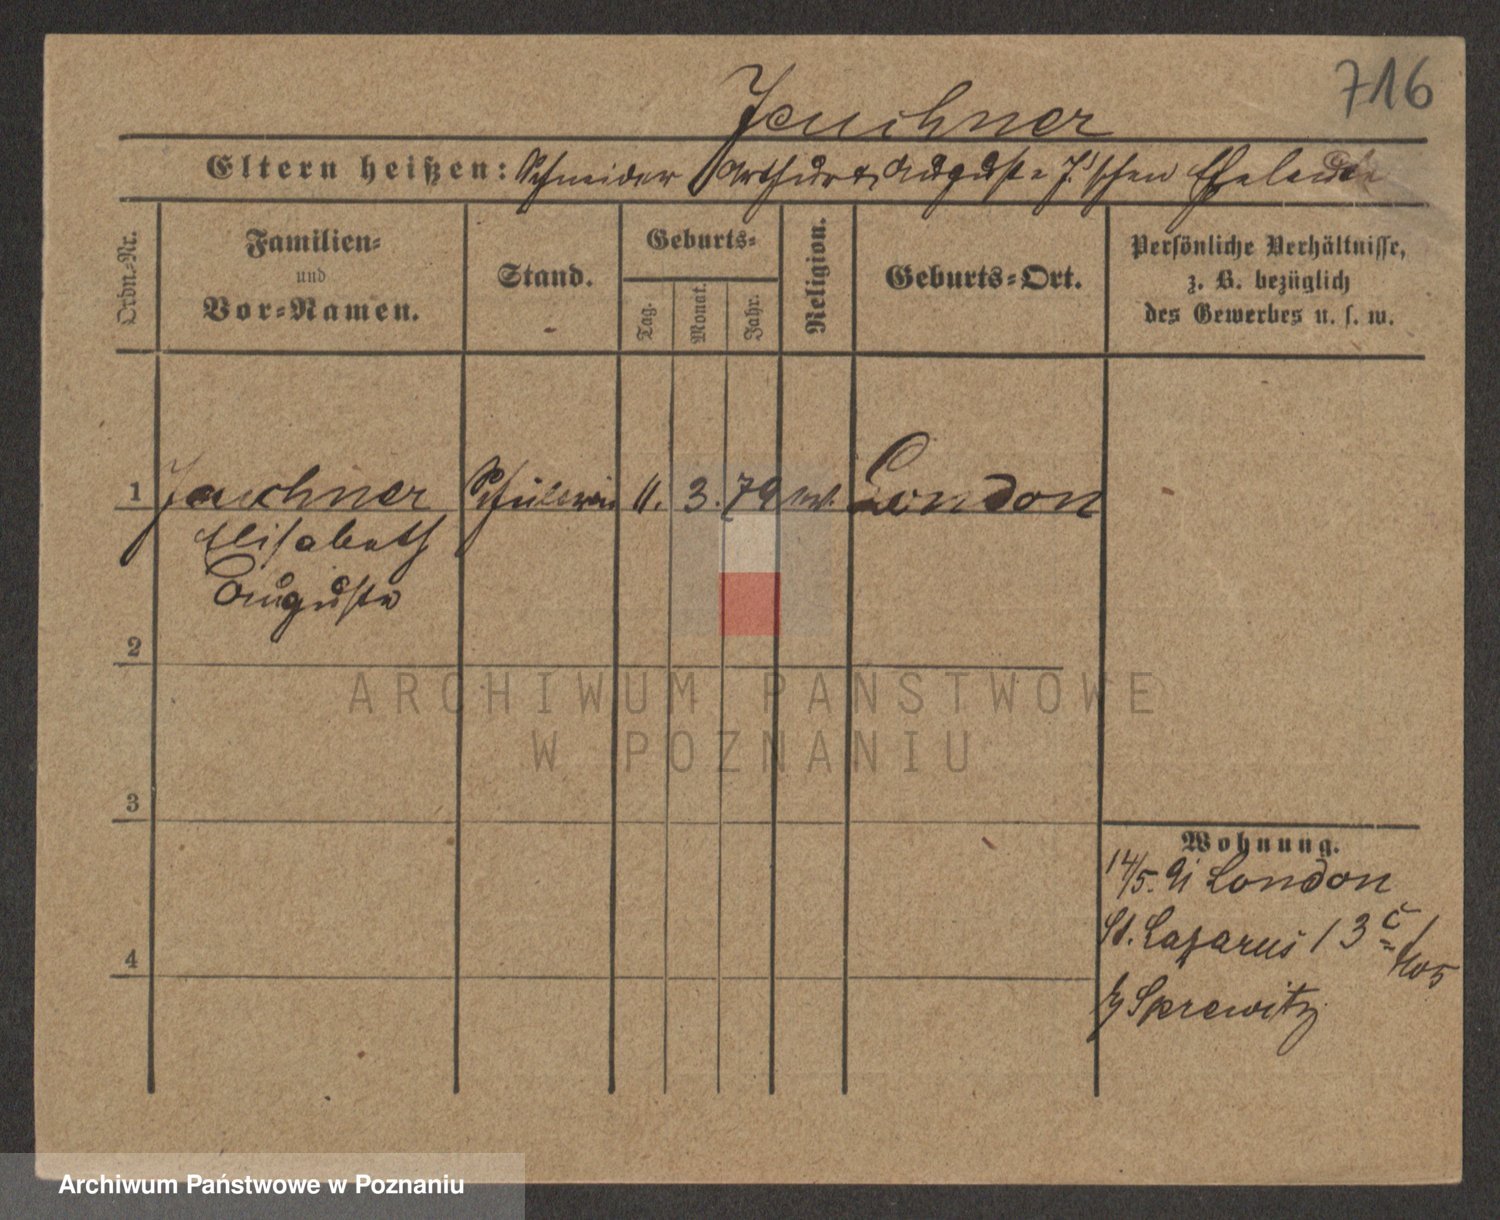 716
Jeuchner
Eltern heißen: Schneider Arthur & Auguste J.'schen Eheleute
Ordn.-Nr.
Familien-
und
Vor-Namen.
Stand.
Geburts-
Tag.
Monat.
Jahr.
Religion.
Geburts-Ort.
Persönliche Verhältnisse,
z. B. bezüglich
des Gewerbes u. s. w.
1 Jeuchner Schülerin 11. 3. 79 London
Elisabeth
Auguste
2
ARCHIWUM PAŃSTWOWE
W POZNANIU
3
4
Wohnung.
14/5. 91 London
St. Lazarus 13 c
Sprewitz
Archiwum Państwowe w Poznaniu